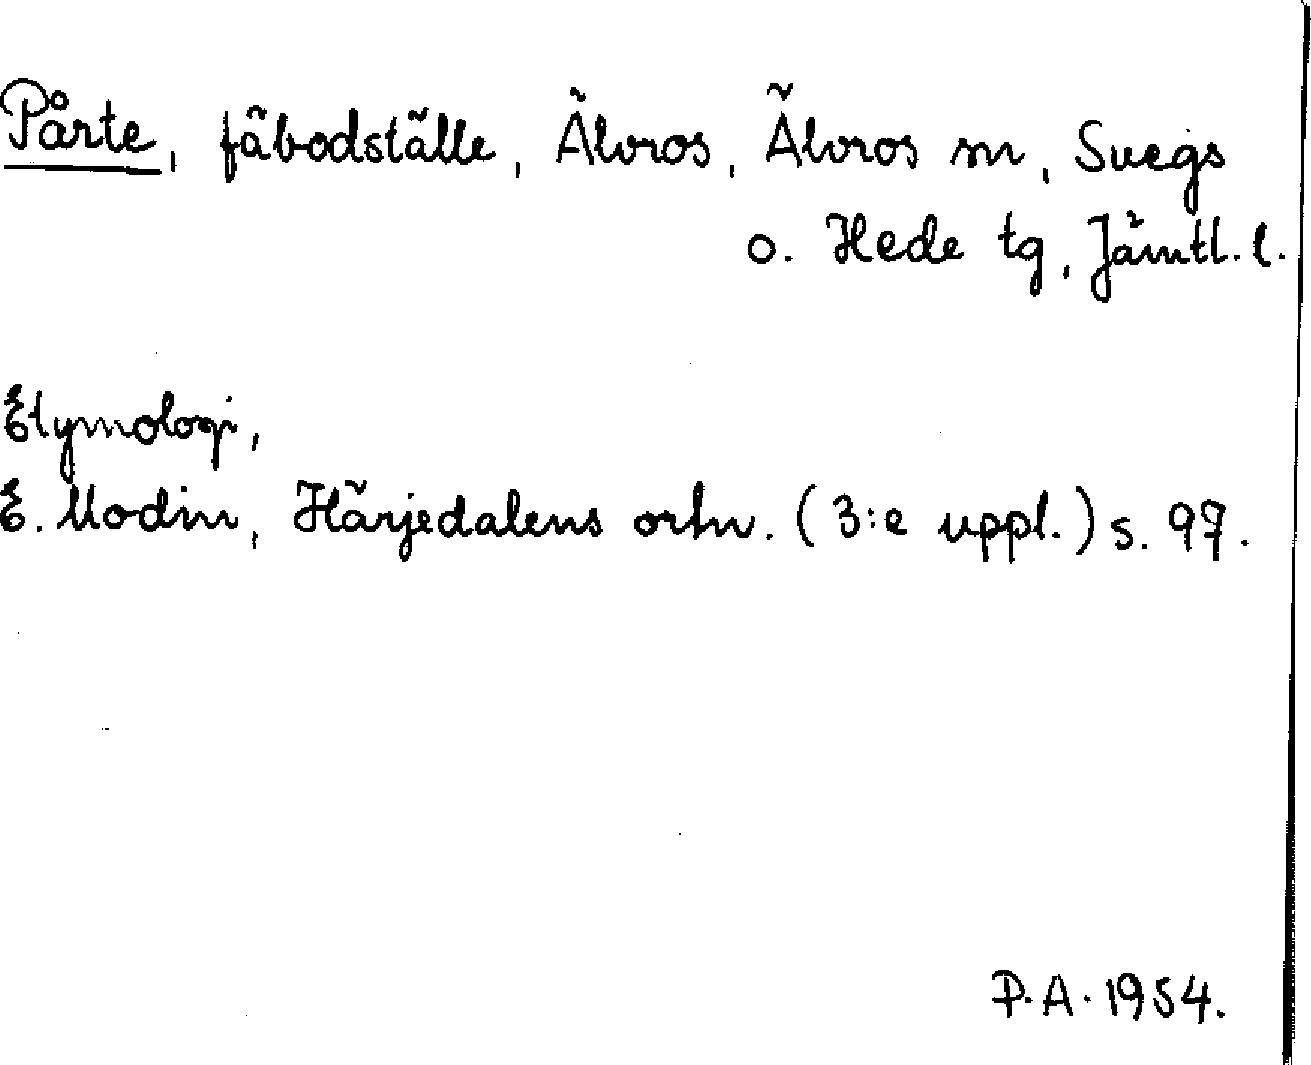 Pårte, fäbodställe, Älvros, Älvros sn, Svegs
o. Hede tg, Jämtl. l.
Etymologi,
E. Modin, Härjedalens ortn. (3:e uppl.) s. 97.
P.A. 1954.